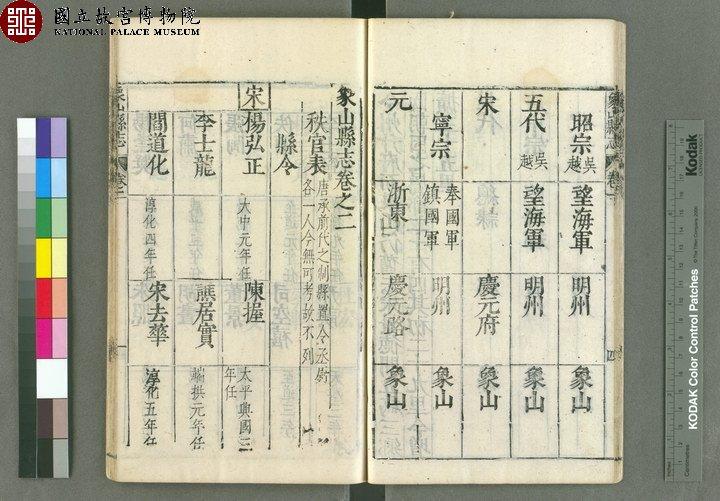 國立故宮博物院
NATIONAL PALACE MUSEUM
昭宗 吳越 望海軍 明州 象山
五代 吳越 望海軍 明州 象山
宋 慶元府 象山
寧宗 奉國軍 鎮國軍 明州 象山
元 浙東 慶元路 象山
象山縣志卷之二
秩官表 唐承前代之制縣置令丞尉各一人今無可考故不列
縣令
宋 楊弘正 大中元年任 陳握 太平興國三年任
李士龍 譙居實 端拱元年任
閻道化 淳化四年任 宋去華 淳化五年任
象山縣志 卷二 一
Kodak
KODAK Color Control Patches